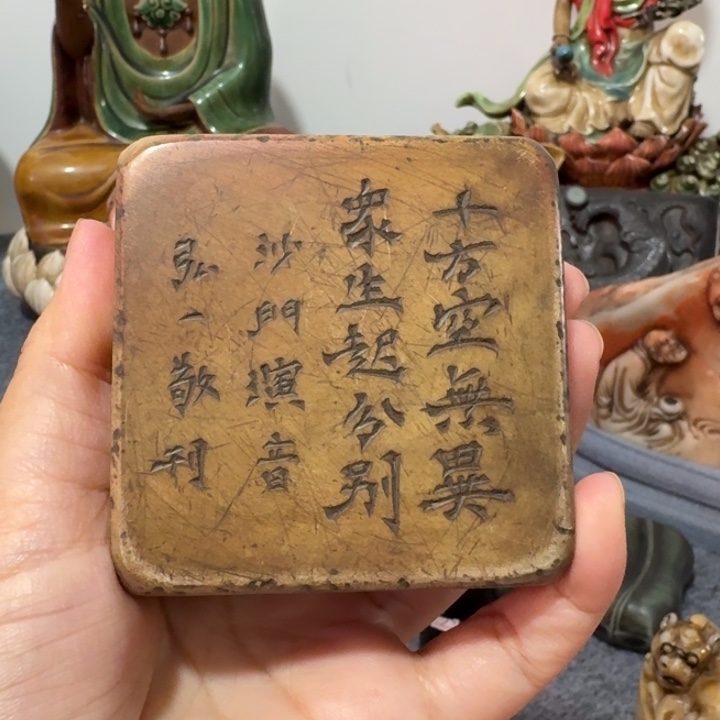 十方空無異
衆生起分別
沙門演音
弘一敬刊